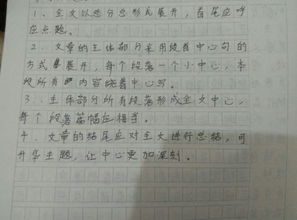 1、全文以总分总形式展开，首尾应呼
应点题。
2、文章的主体部分采用段首中心句的
方式展开，每个段落一个小中心，本
段所有内容绕着中心写。
3、主体部分所有段落形成全文中心，
每个段落篇幅应相等。
4、文章的结尾应对全文进行总结，可
升华主题，让中心更加深刻。